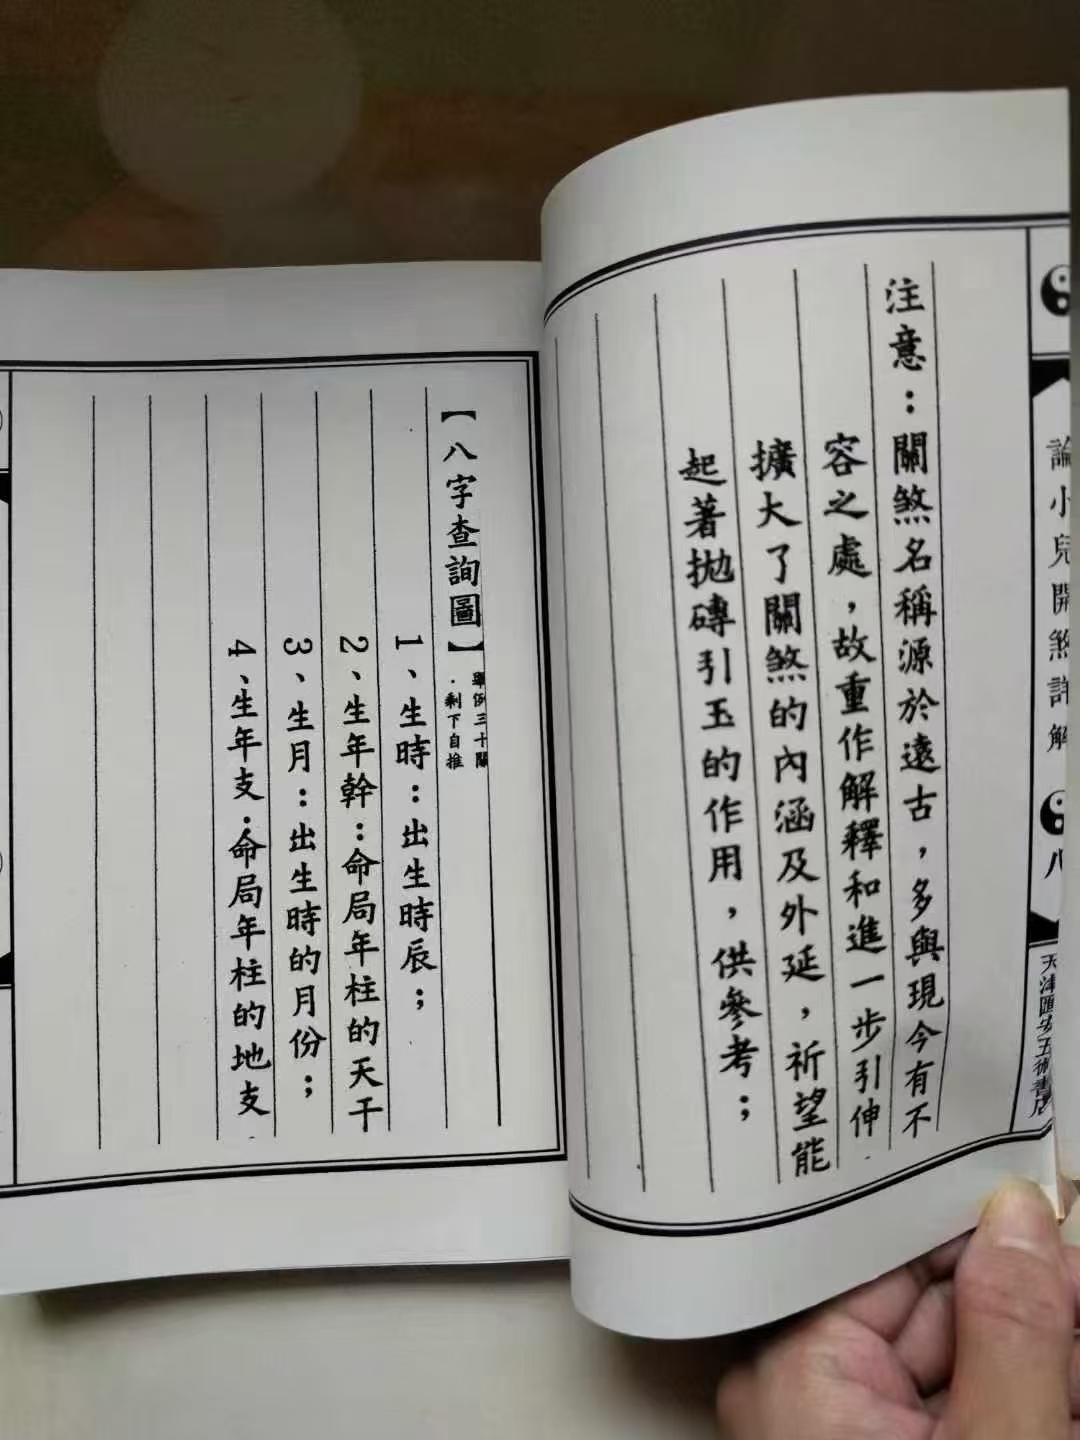 論小兒開煞詳解
八
天津匯安五術書店
注意：關煞名稱源於遠古，多與現今有不
容之處，故重作解釋和進一步引伸
擴大了關煞的內涵及外延，祈望能
起著拋磚引玉的作用，供參考；
【八字查詢圖】
舉例三十關
．剩下自推
1、生時：出生時辰；
2、生年幹：命局年柱的天干
3、生月：出生時的月份；
4、生年支：命局年柱的地支